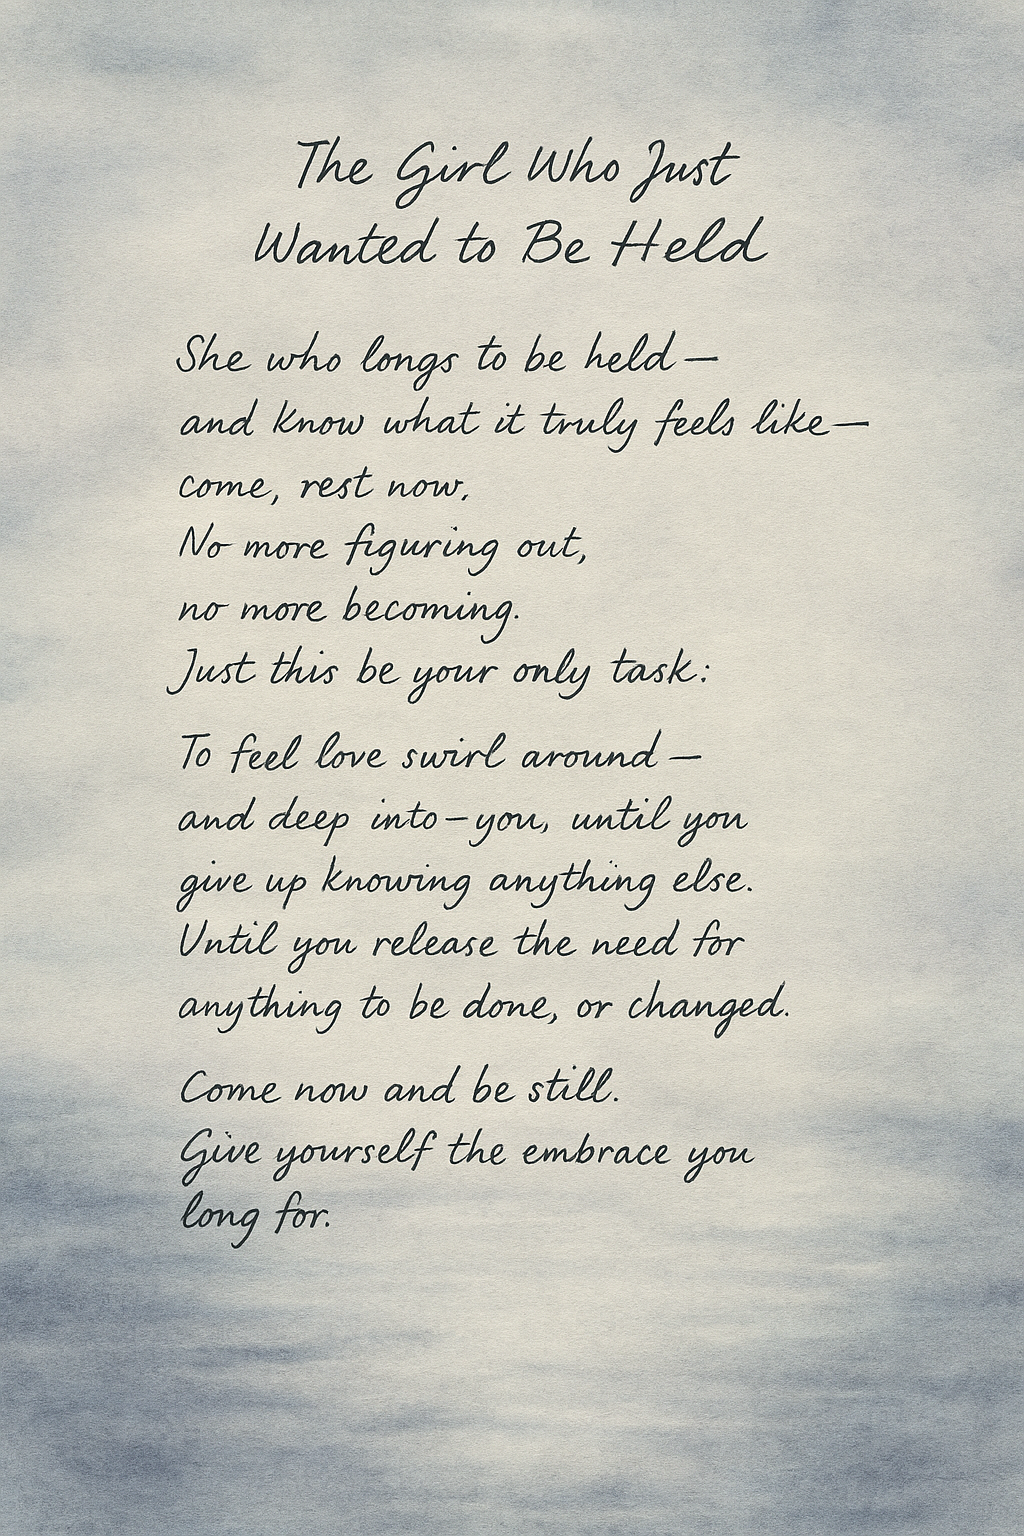 The Girl Who Just
Wanted to Be Held
She who longs to be held—
and know what it truly feels like—
come, rest now.
No more figuring out,
no more becoming.
Just this be your only task:
To feel love swirl around—
and deep into—you, until you
give up knowing anything else.
Until you release the need for
anything to be done, or changed.
Come now and be still.
Give yourself the embrace you
long for.